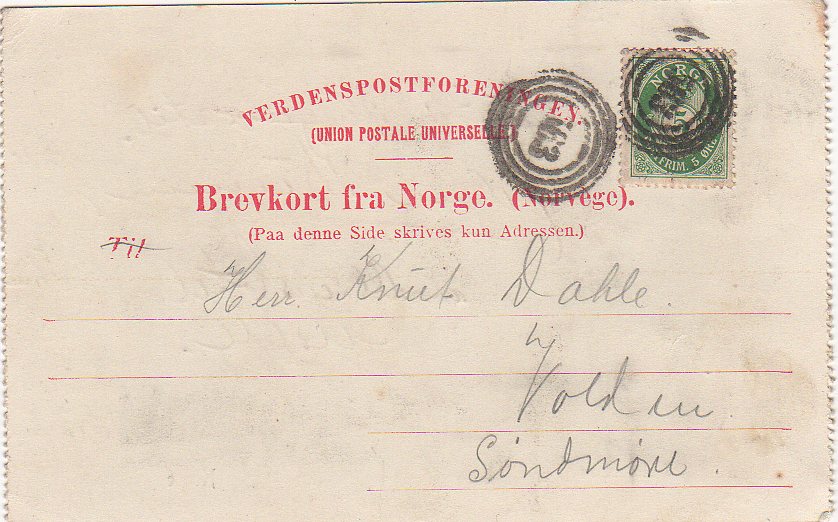 VERDENSPOSTFORENINGEN.
(UNION POSTALE UNIVERSELLE.)
NORGE
FRIM. 5 ØRE
Brevkort fra Norge. (Norvège).
(Paa denne Side skrives kun Adressen.)
Til
Herr. Knut Dahle.
Volden.
Søndmøre.